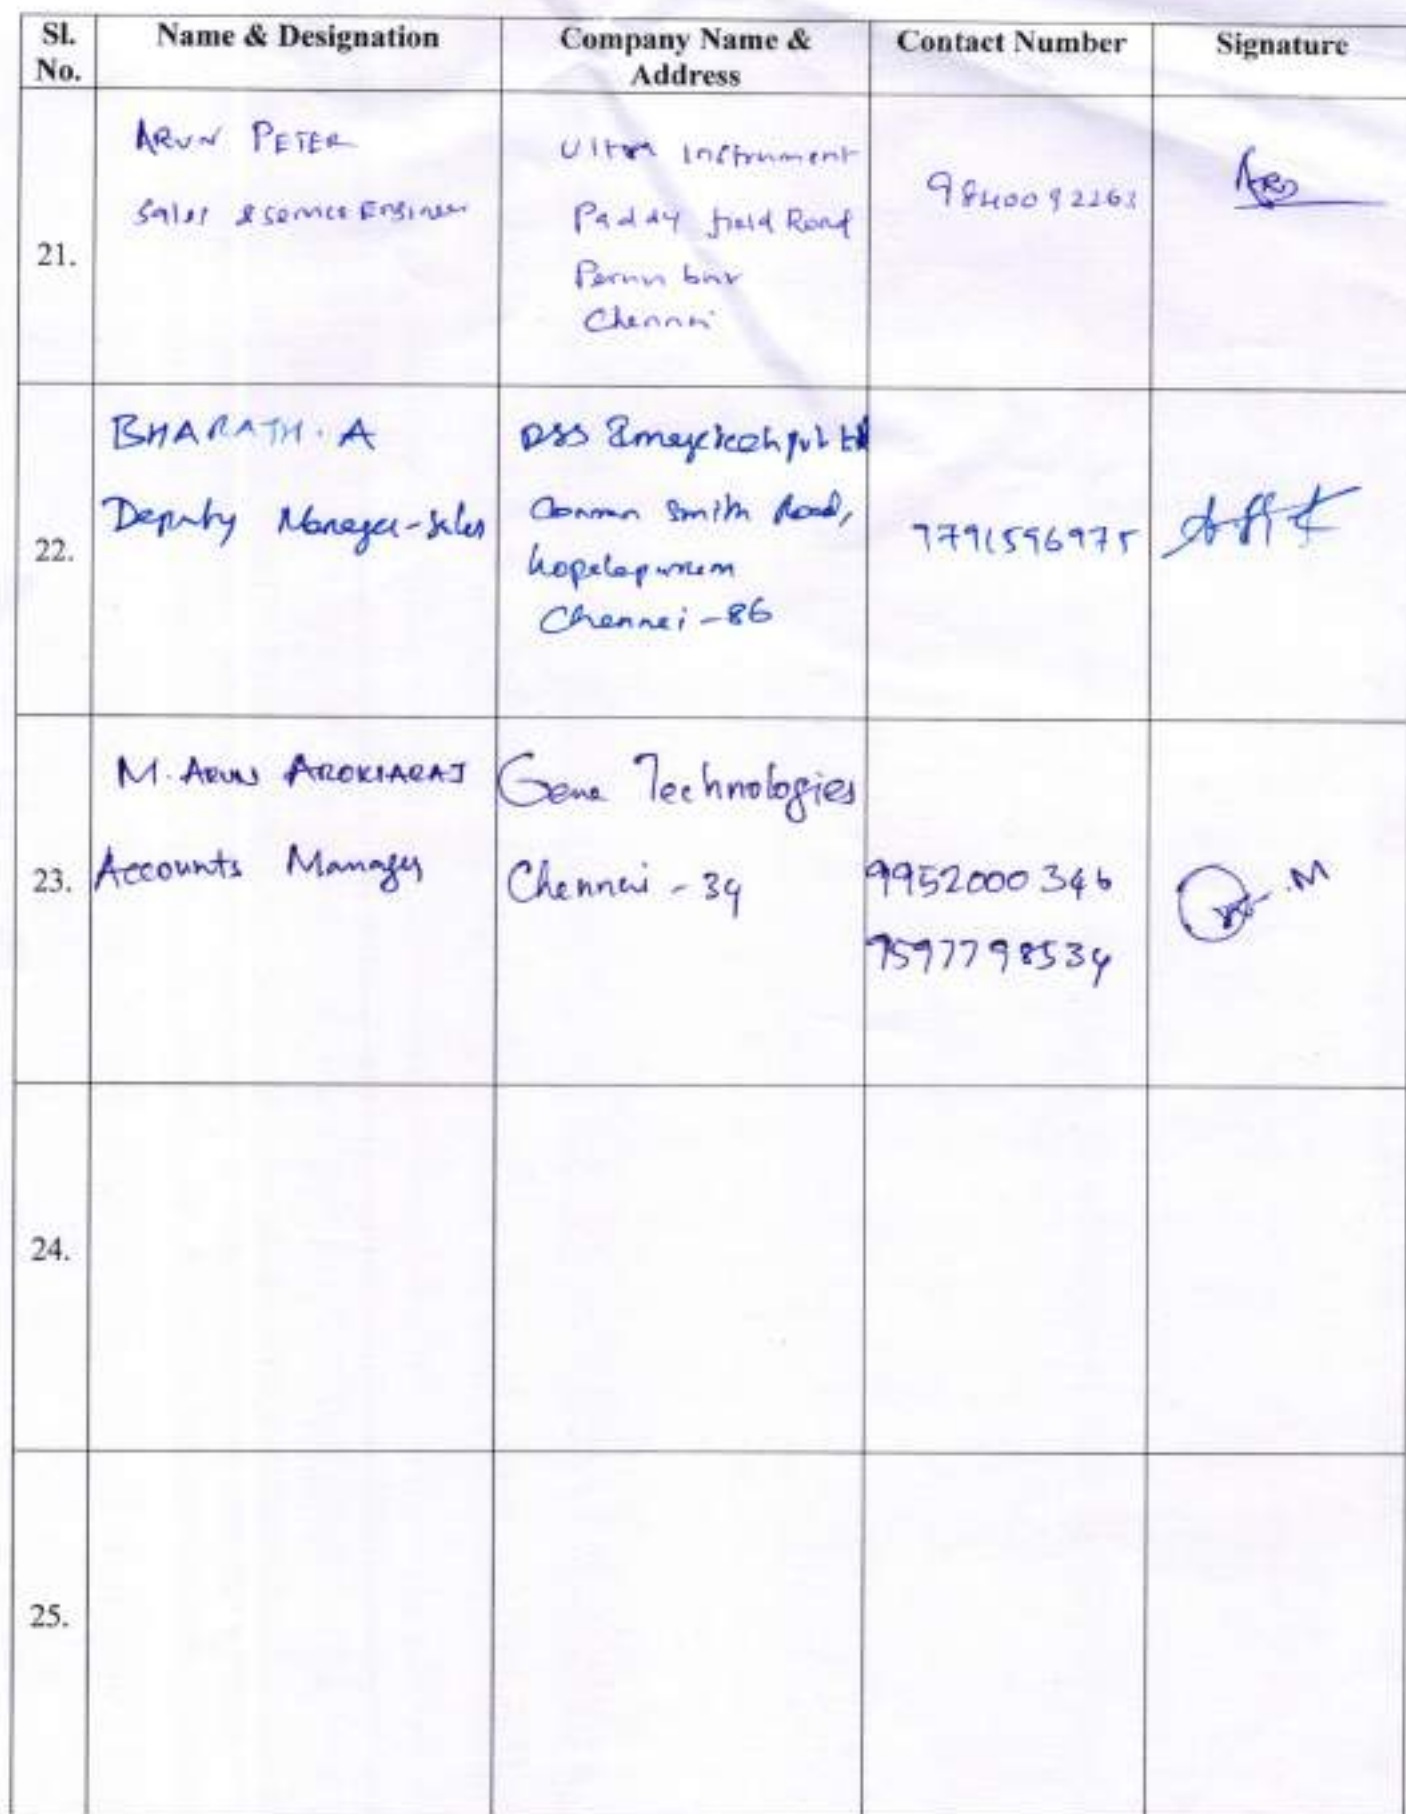 Sl. No.	Name & Designation	Company Name & Address	Contact Number	Signature
21.
ARUN PETER
Sales & service Engineer
Ultra Instrument
Paddy field Road
Chennai
9840092263
22.
BHARATH. A
Deputy Manager-Sales
DSS pvt ltd
Smith Road,
Chennai - 86
9791596975
23.
M. ARUN AROKIARAJ
Accounts Manager
Gene Technologies
Chennai - 34
9952000346
9597798534
24.
25.